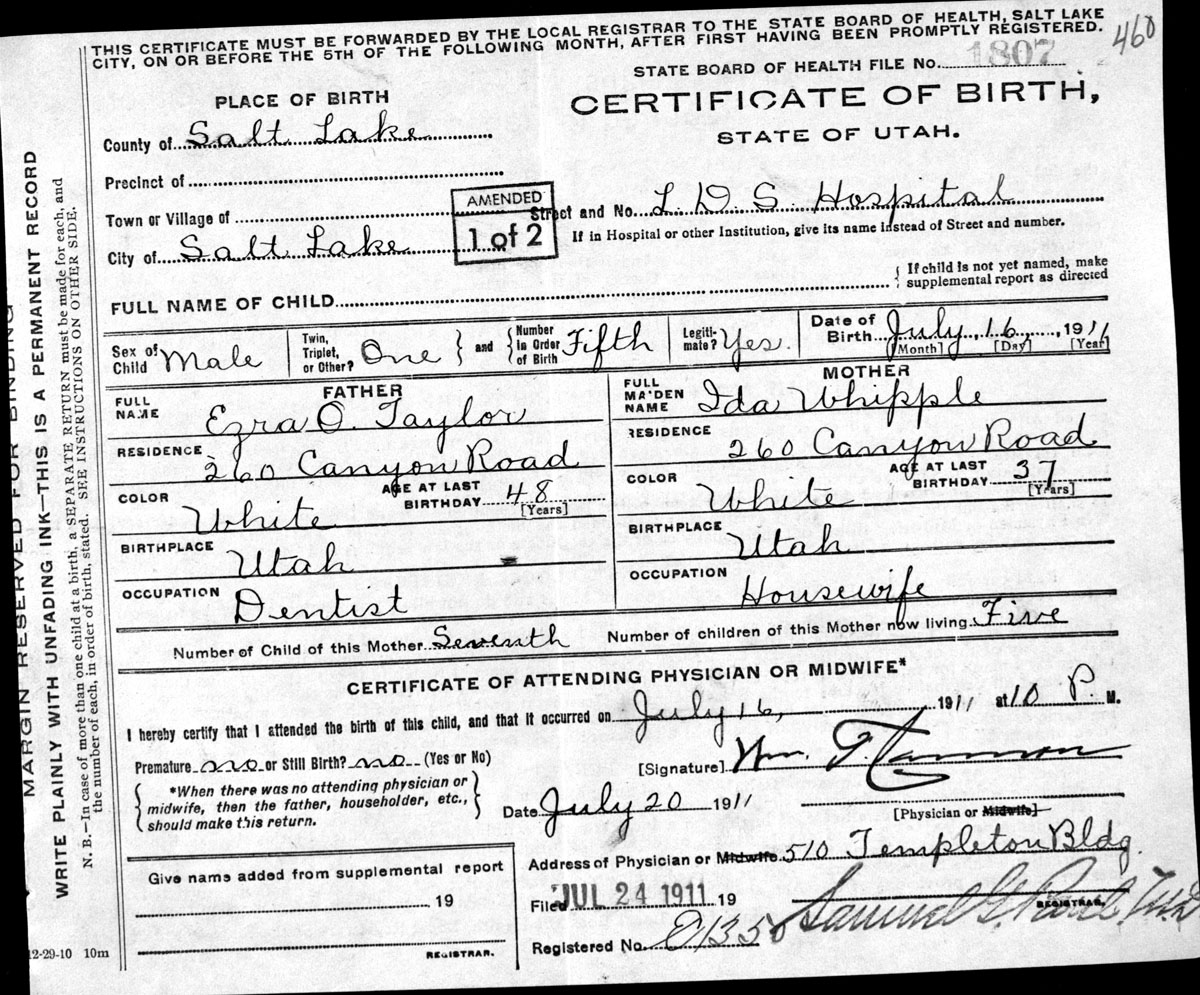 THIS CERTIFICATE MUST BE FORWARDED BY THE LOCAL REGISTRAR TO THE STATE BOARD OF HEALTH, SALT LAKE
CITY, ON OR BEFORE THE 5TH OF THE FOLLOWING MONTH, AFTER FIRST HAVING BEEN PROMPTLY REGISTERED.
460
STATE BOARD OF HEALTH FILE NO. 1807
PLACE OF BIRTH
CERTIFICATE OF BIRTH,
STATE OF UTAH.
County of Salt Lake
Precinct of
Town or Village of
AMENDED
1 of 2
Street and No. L. D. S. Hospital
If in Hospital or other Institution, give its name instead of Street and number.
City of Salt Lake
FULL NAME OF CHILD
{ If child is not yet named, make
supplemental report as directed
Sex of Child Male
Twin, Triplet, or Other? One } and { Number in Order of Birth Fifth
Legitimate? Yes.
Date of Birth July 16, 1911
[Month] [Day] [Year]
FATHER
FULL NAME Ezra O. Taylor
RESIDENCE 260 Canyon Road
COLOR White AGE AT LAST BIRTHDAY 48 [Years]
BIRTHPLACE Utah
OCCUPATION Dentist
MOTHER
FULL MAIDEN NAME Ida Whipple
RESIDENCE 260 Canyon Road
COLOR White AGE AT LAST BIRTHDAY 37 [Years]
BIRTHPLACE Utah
OCCUPATION Housewife
Number of Child of this Mother Seventh Number of children of this Mother now living Five
CERTIFICATE OF ATTENDING PHYSICIAN OR MIDWIFE*
I hereby certify that I attended the birth of this child, and that it occurred on July 16, 1911 at 10 P M.
Premature no or Still Birth? no (Yes or No)
[Signature] Wm. F. Cannon
{ *When there was no attending physician or
midwife, then the father, householder, etc., }
should make this return.
Date July 20 1911
[Physician or Midwife]
Address of Physician or Midwife 510 Templeton Bldg.
Give name added from supplemental report
19
REGISTRAR.
Filed JUL 24 1911 19
Samuel G. Paul
REGISTRAR.
Registered No. 1350
12-29-10 10m
MARGIN RESERVED FOR BINDING
WRITE PLAINLY WITH UNFADING INK—THIS IS A PERMANENT RECORD
N. B.—In case of more than one child at a birth, a SEPARATE RETURN must be made for each, and
the number of each, in order of birth, stated. SEE INSTRUCTIONS ON OTHER SIDE.